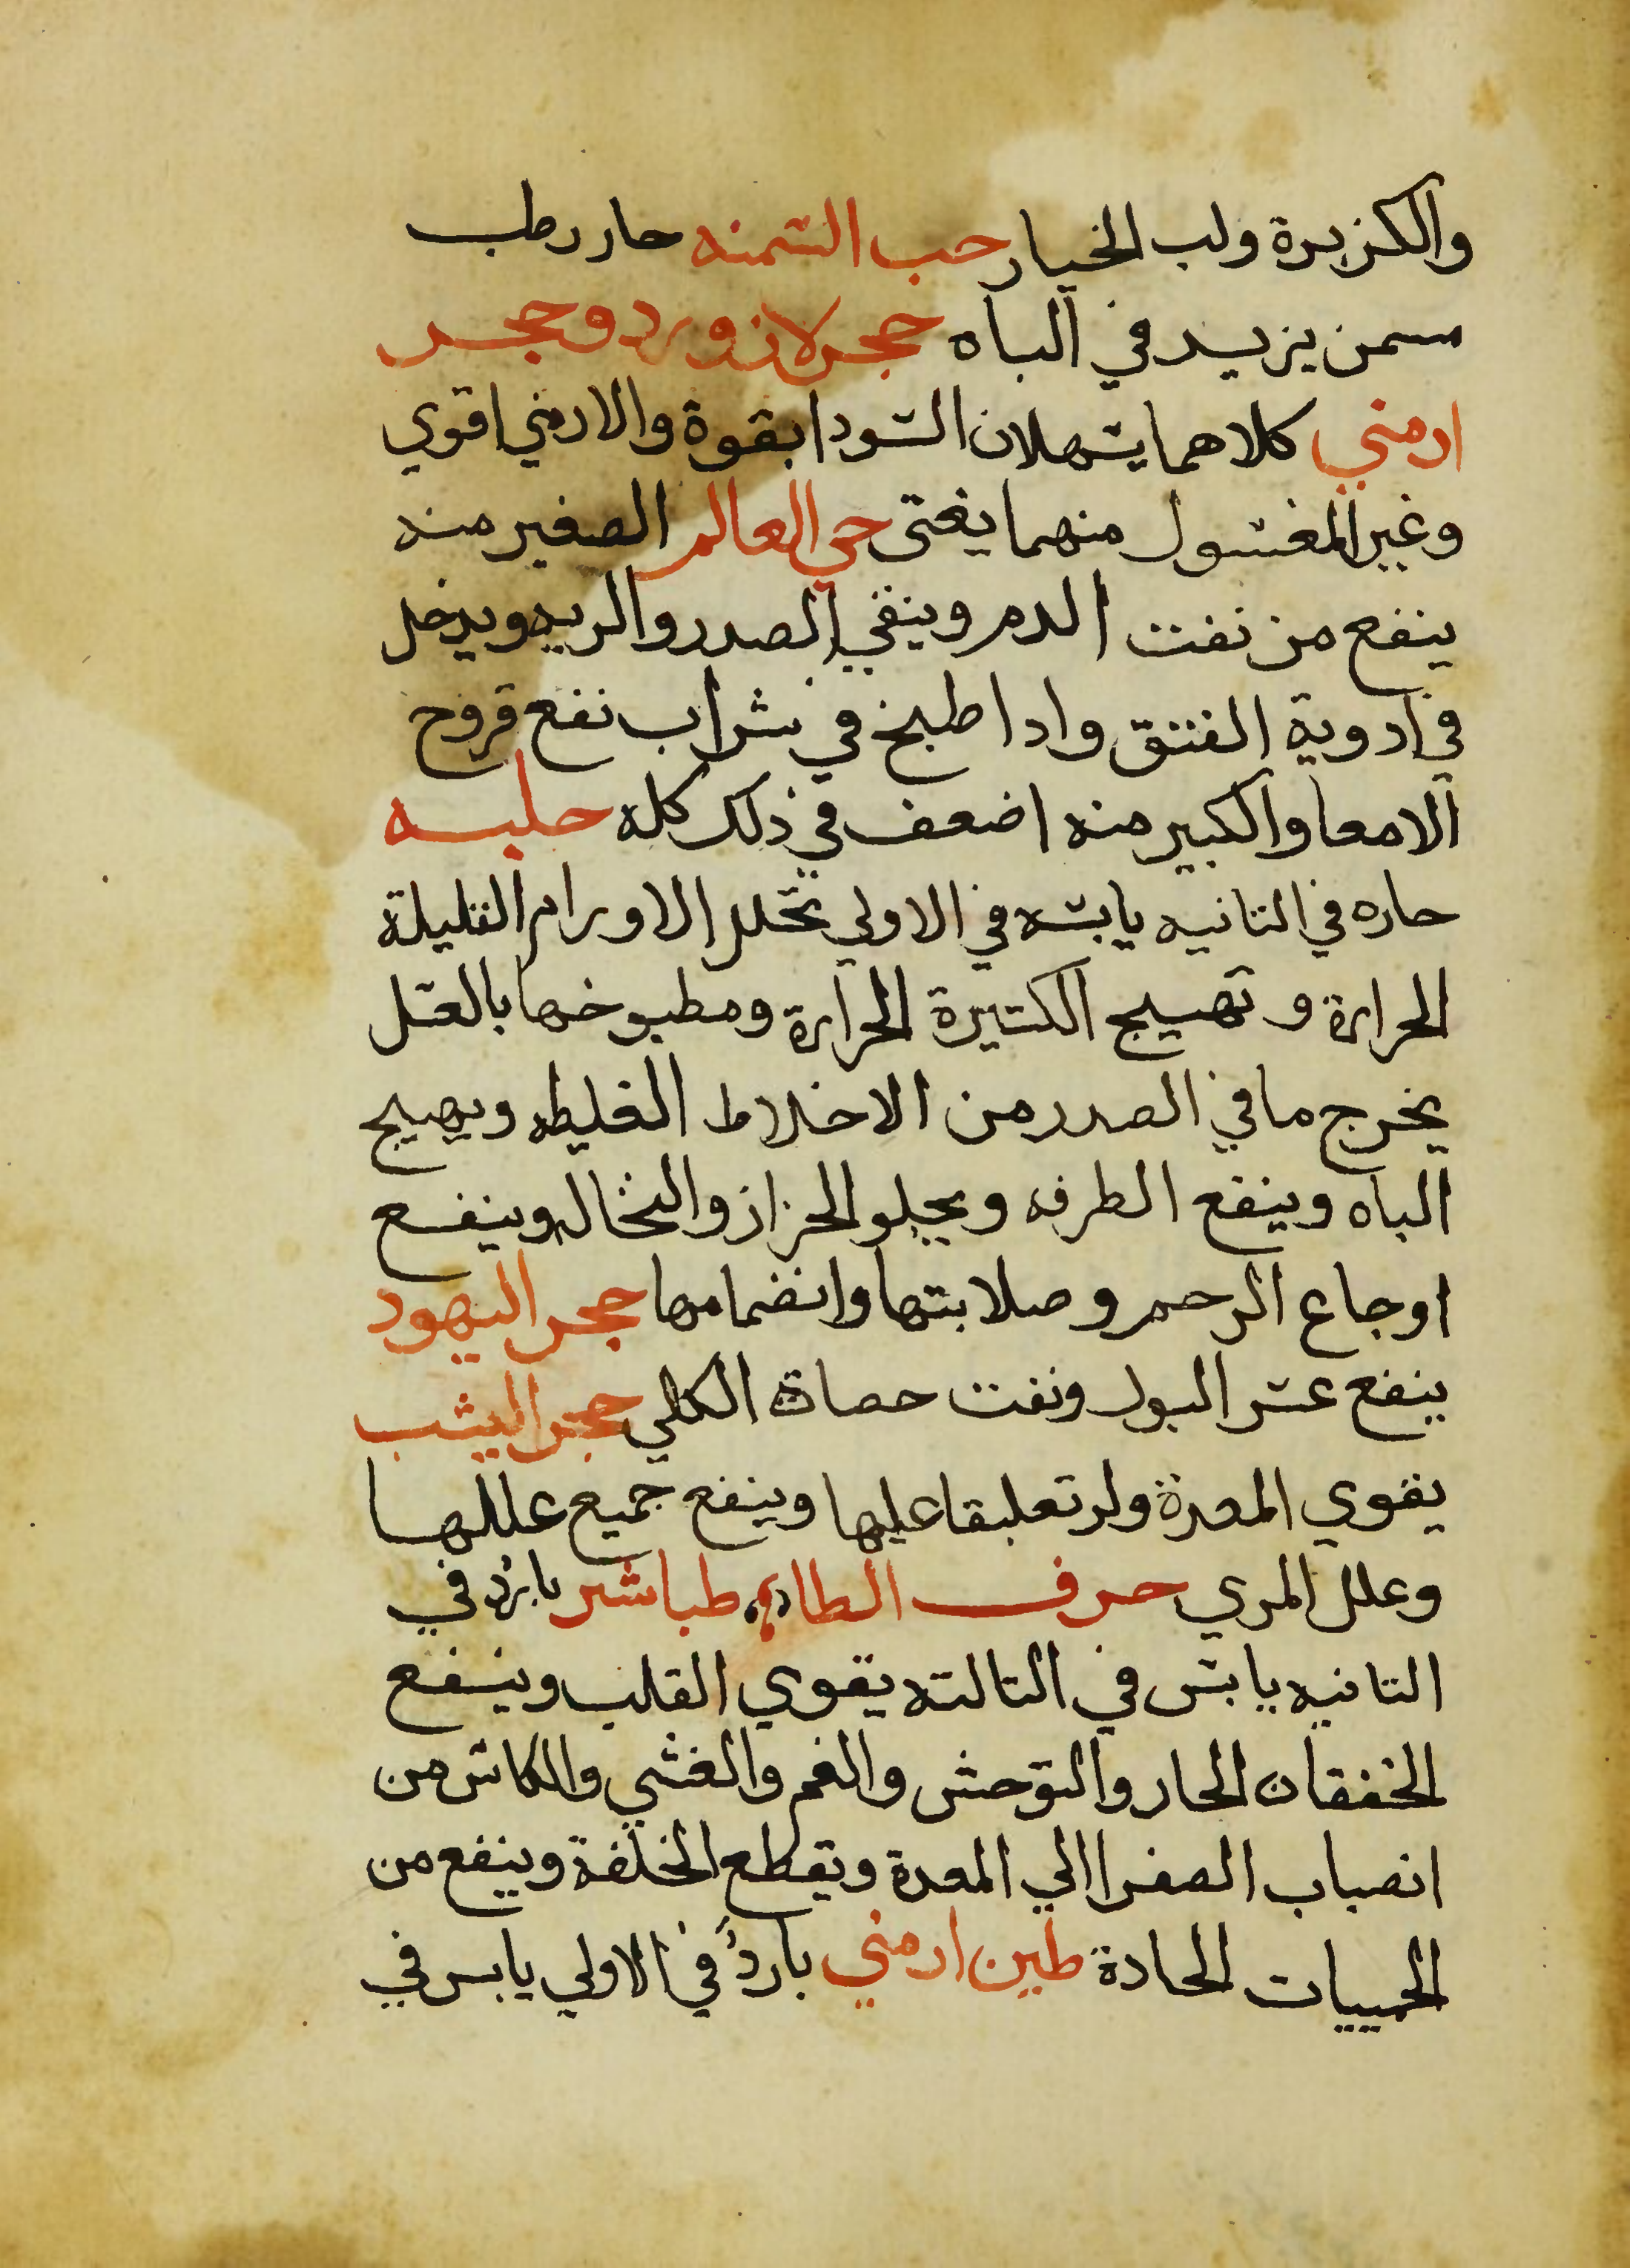 والكزبرة ولب الخيار حب السمنه حار رطب
سمن يزيد في الباه حجر لازورد وحجر
ارمني كلاهما يسهلان السودا بقوة والارمني اقوي
وغير المغسول منهما يغثي حي العالم الصغير منه
ينفع من نفت الدم وينقي الصدر والريه ويدخل
في ادوية الفتق وادا طبخ في شراب نفع قروح
الامعا والكبير منه اضعف في ذلك كله حلبه
حاره في التانيه يابسه في الاولي تحلل الاورام القليلة
الحرارة و تهييج الكتيرة الحرارة ومطبوخها بالعسل
يخرج ما في الصدر من الاخلاط الغليظه ويهيج
الباه وينفع الطرفه ويجلو الحزاز والنخاله وينفع
اوجاع الرحم وصلابتها وانضمامها حجر اليهود
ينفع عسر البول ونفت حصاة الكلي حجر اليشب
يقوي المعدة ولو تعليقا عليها وينفع جميع عللها
وعلل المري حرف الطاء طباشر بارد في
التانيه يابس في التالته يقوي القلب وينفع
الخفقان الحار والتوحش والغم والغشي والكائن من
انصباب الصفرا الي المعدة ويقطع الخلفة وينفع من
الحميات الحادة طين ارمني بارد في الاولي يابس في